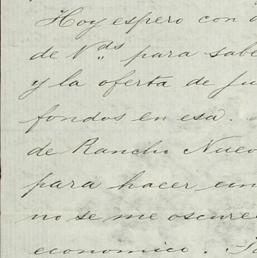 Hoy espero con
de Vds para sabe
y la oferta de Ju
fondos en esa.
de Rancho Nuevo
para hacer em
no se me oscure
economico.